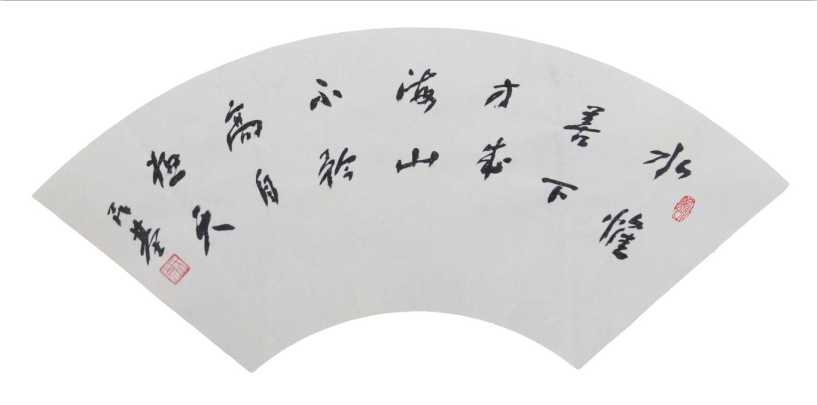 水
善下
方成
海山
不矜
高自
極天